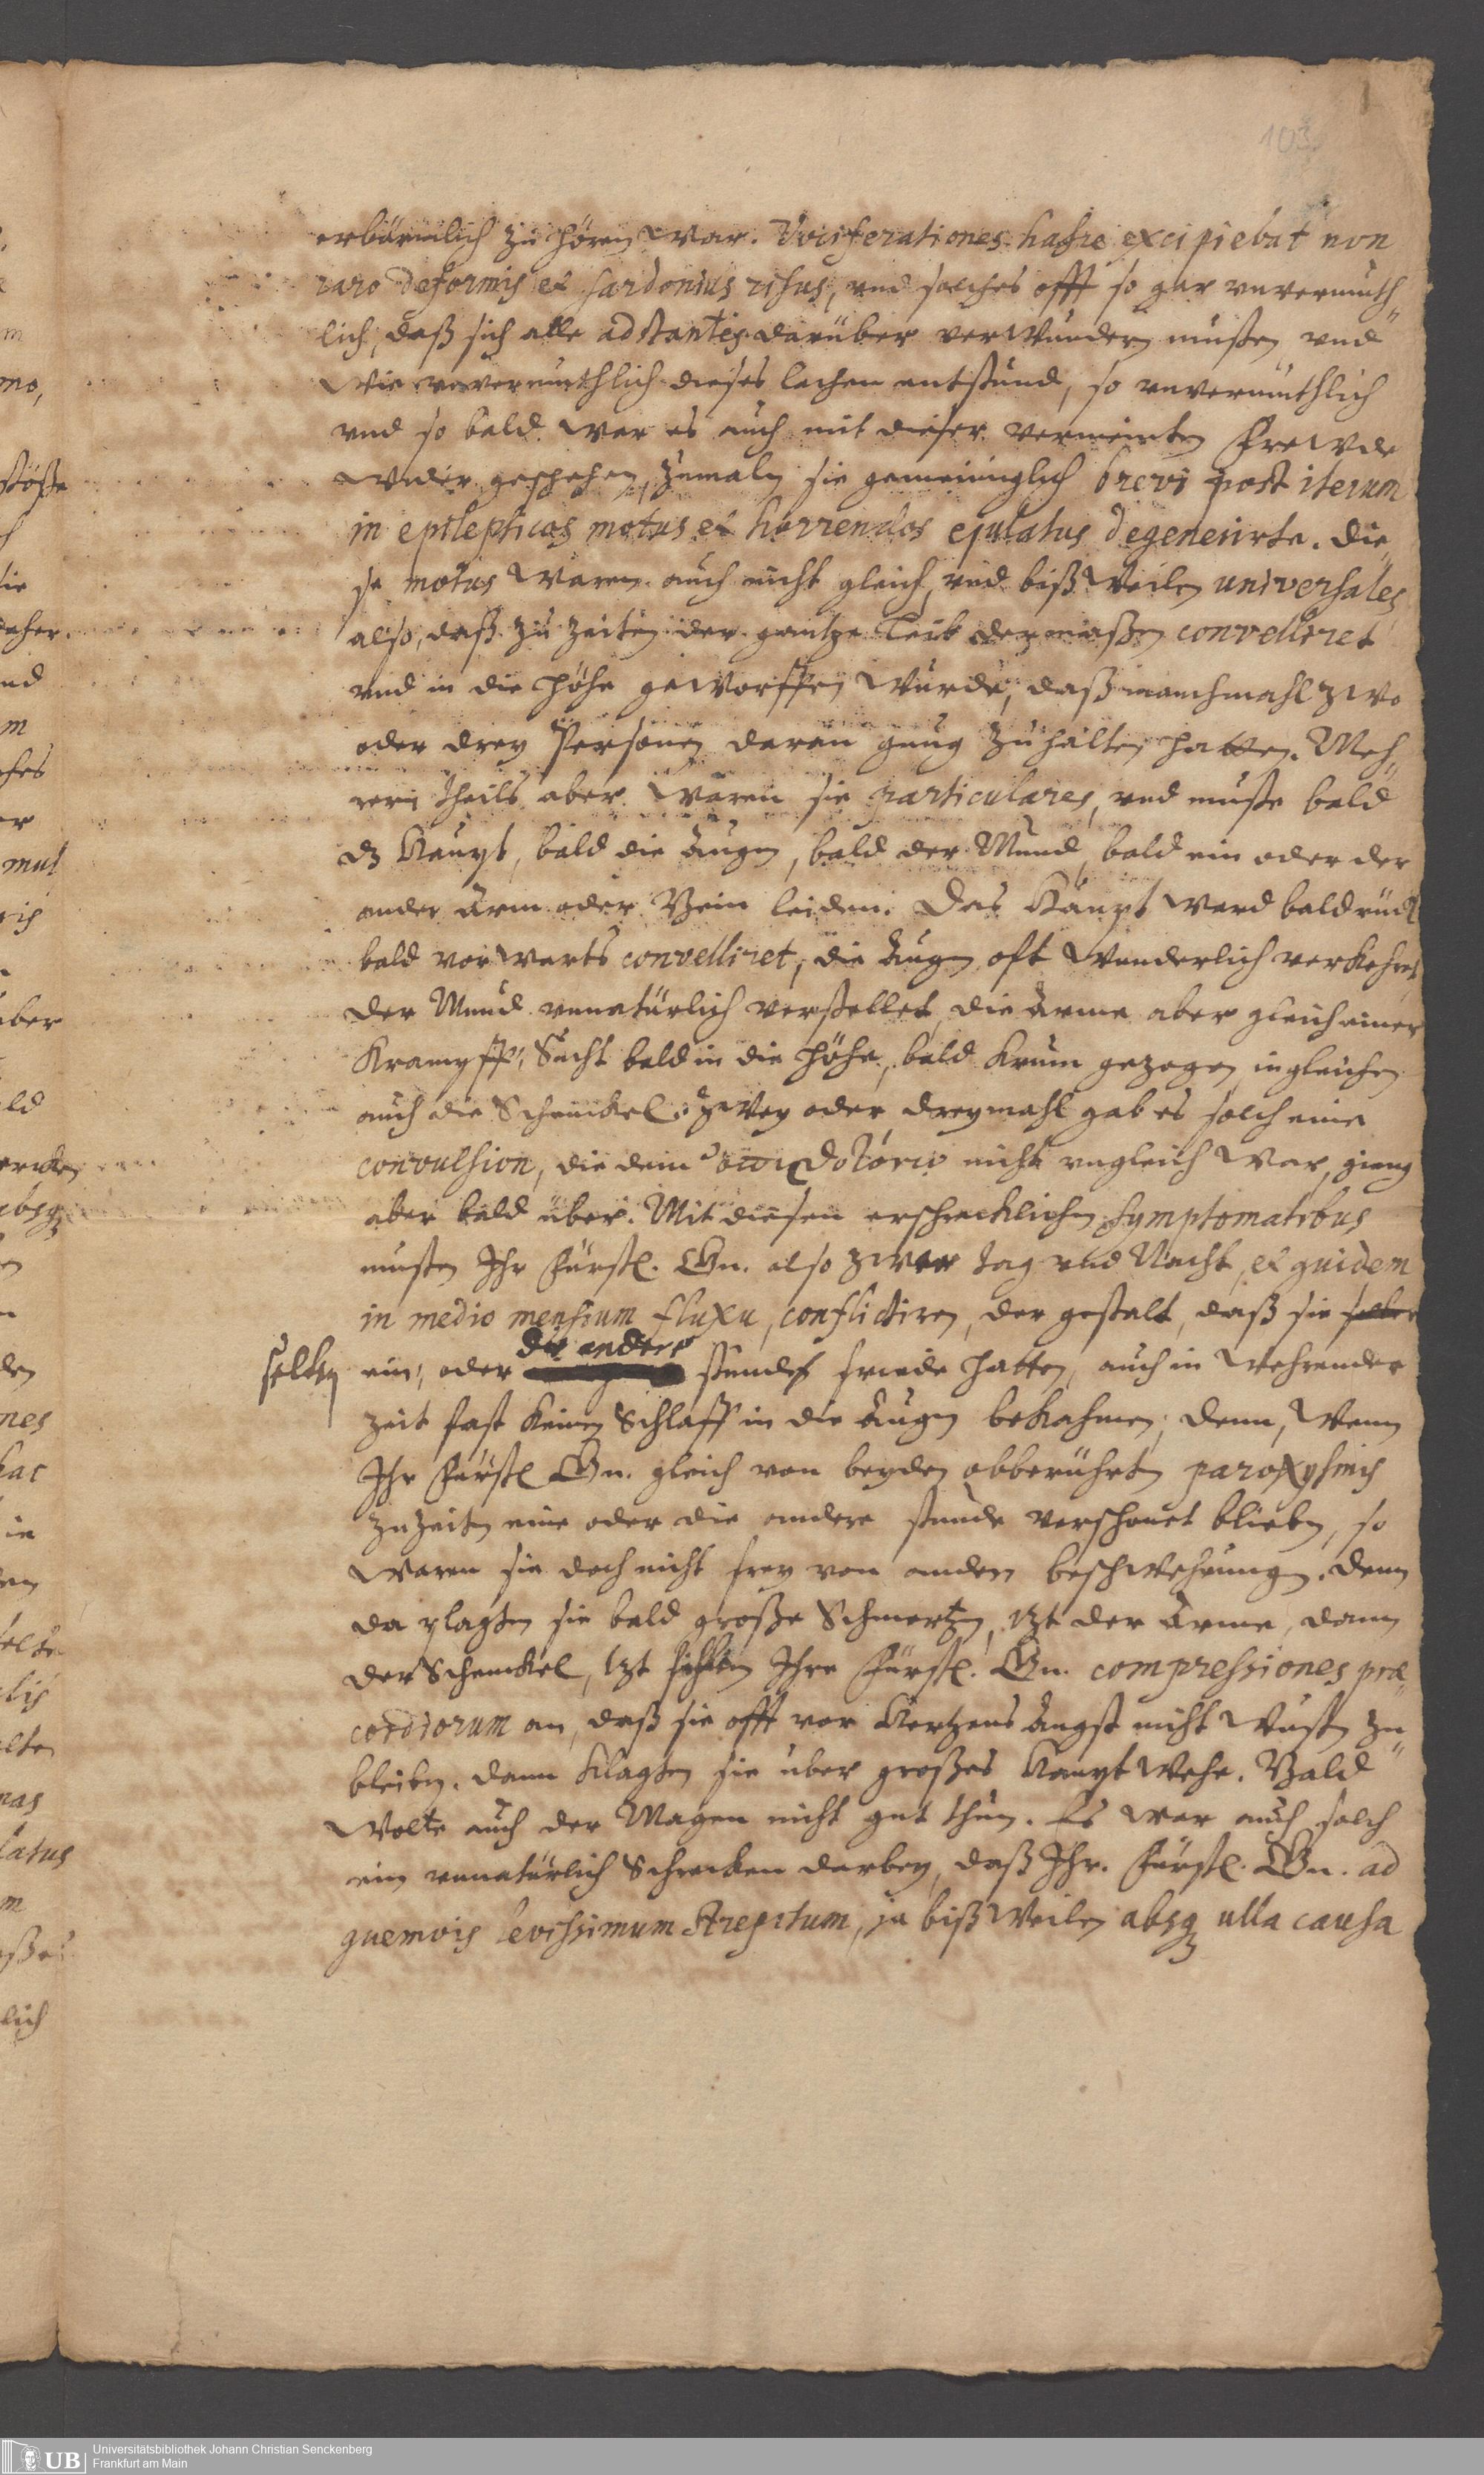 103
erbärmlich zu hören war. Vociferationes hasce excipiebat non
raro deformis et sardonius risus, vnd solches offt so gar vnvermuth„
lich, daß sich alle adstantes darüber verwundern musten, vnd
wie vnvermuthlich dieses lachen entstund, so vnvermuthlich
vnd so bald war es auch mit dieser vermeinten Frewde
wider geschehen, zumaln sie gemeiniglich brevi post iterum
in epilepticos motus et horrendos ejulatus degenerirte. Die„
se motus waren auch nicht gleich, vnd bißweilen universales
also, daß zu zeiten der gantze Leib dermaßen convelliret
vnd in die höhe geworffen wurde, daß manchmahl zwo
oder drey Personen daran gnug zu halten hatten. Meh„
rern theils aber waren sie particulares, vnd muste bald
dz Haupt, bald die Augen, bald der Mund, bald ein oder der
ander Arm oder Bein leiden. Das Häupt ward bald rück
bald vorwarts convelliret, die Augen oft wunderlich verkehret
der Mund vnnatürlich verstellet, die Arme aber gleich einer
Krampff Sucht bald in die höhe, bald krum gezogen, ingleichen
auch die Schenckel. Zwey oder dreymahl gab es solch eine
convulsion, die dem ὀπισθοτόνῳ nicht vngleich war, gieng
aber bald über. Mit diesen erschrecklichen symptomatibus
musten Ihr Fürstl. Gn. also zwar tag vnd Nacht, et quidem
in medio mensium fluxu, conflictiren, der gestalt, daß sie selten
selten ein, oder die andere stunde friede hatten, auch in wehrender
zeit fast keinen Schlaff in die Augen bekahmen, denn, wenn
Ihr Fürstl Gn. gleich von beyden obberührten paroxysmis
zu zeiten eine oder die andere stunde verschonet blieben, so
waren sie doch nicht frey von andern beschwehrungen. Denn
da plagten sie bald große Schmertzen, itzt der Arme, dann
der Schenckel, itzt Ihre Fürstl. Gn. compressiones præ„
cordiorum an, daß sie offt vor Hertzens Angst nicht wusten zu„
bleiben. dann klagten sie uber großes Hauptwehe. Bald
wolte auch der Magen nicht gut thun. Es war auch solch
ein vnnatürlich Schrecken darbey, daß Ihr. Fürstl. Gn. ad
quemvis levissimum strepitum, ja bißweilen absq ulla causa
Universitätsbibliothek Johann Christian Senckenberg
Frankfurt am Main
UB